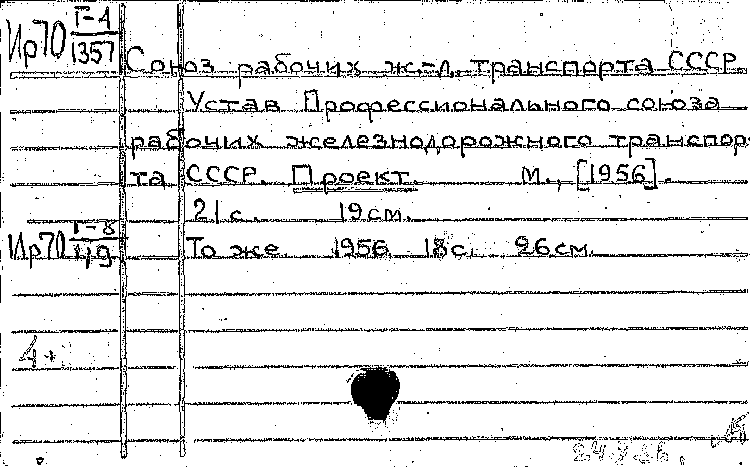 Ир70 Г-4/1357
Союз рабочих ж.-д. транспорта СССР.
Устав Профессионального союза
рабочих железнодорожного транспор-
та СССР. Проект. М., [1956].
21 с. 19 см.
Ир70 Г-8/119 То же. 1956 18 с. 26 см.
4+